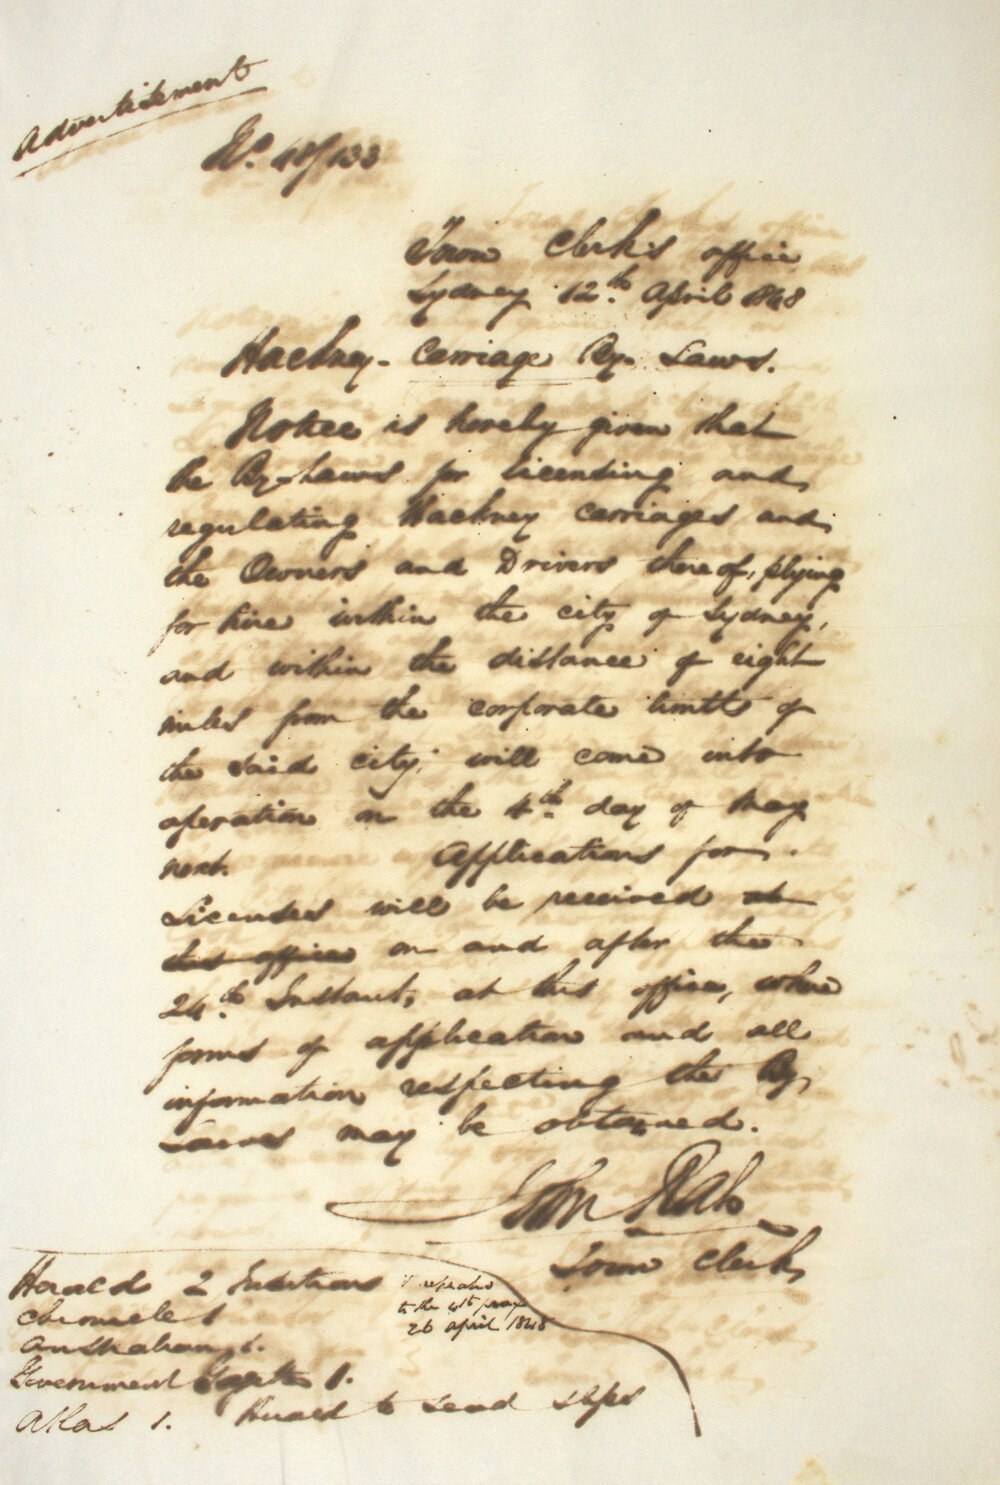 Advertisement
No. 48/133
Town Clerk's office
Sydney 12th April 1848
Hackney-Carriage By-Laws.
Notice is hereby given that
the By-Laws for licensing and
regulating Hackney Carriages and
the Owners and Drivers thereof, plying
for hire within the city of Sydney,
and within the distance of eight
miles from the corporate limits of
the said city, will come into
operation on the 4th day of May
next. Applications for
Licenses will be received at
this office on and after the
24th Instant, at this office, where
forms of application and all
information respecting the By-
Laws may be obtained.
John Rae
Town Clerk
Herald 2 Insertions
Chronicle 1
Australian 1.
Government Gazette 1.
Atlas 1. Herald to send slips
repeated
to the 4th
26 April 1848